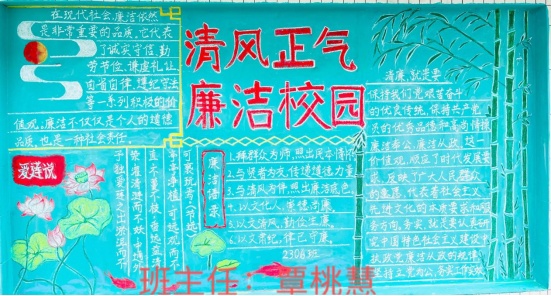 在现代社会,廉洁依然
是非常重要的品质,它代表
了诚实守信,勤
劳节俭,谦虚礼让
自省自律,遵纪守法
等一系列积极的价
值观,廉洁不仅仅是个人的道德
品质,也是一种社会责任。
清风正气
廉洁校园
爱莲说
予独爱莲之出淤泥而不
染,濯清涟而不妖,中通外
直,不蔓不枝,香远益清,
亭亭净植,可远观而不
可亵玩焉
廉洁语录
2.与贤者为友,传递道德力量
3.与清风为伴,照出廉洁底色
4.以文化人,崇德尚廉
5.以文清风,勤俭主廉
6.以文肃纪,律己守廉
2308班
清廉,就是要
保持我们党艰苦奋斗
的优良传统,保持共产党
员的优秀品德和高尚情操
廉洁奉公,廉洁从政,这一
价值观,顺应了时代发展要
求,反映了广大人民群众
的意愿,代表着社会主义
先进文化的本质要求和服
究中国特色社会主义建设中
执政党廉洁从政的规律
班主任:覃桃慧